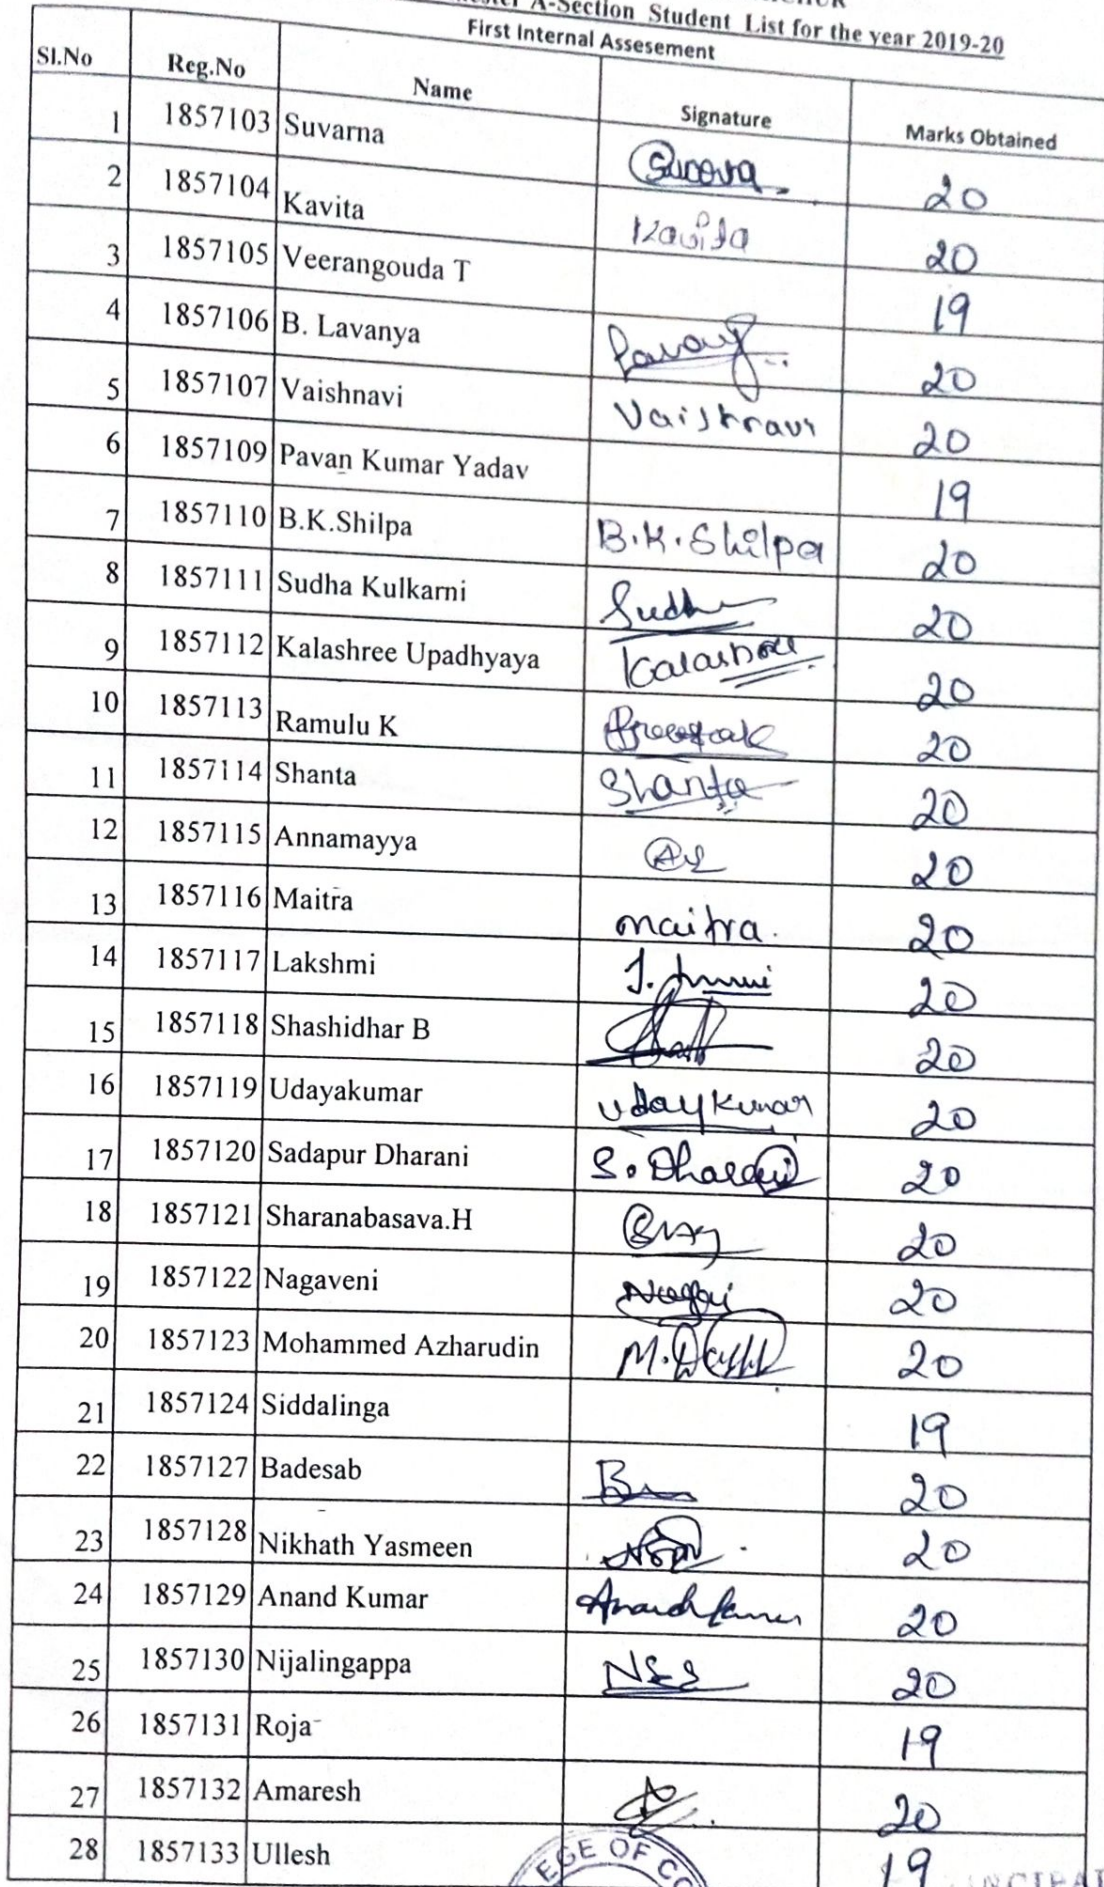 A-Section Student List for the year 2019-20
First Internal Assesement
Sl.No Reg.No Name Signature Marks Obtained
1 1857103 Suvarna 20
2 1857104 Kavita Kavita 20
3 1857105 Veerangouda T 19
4 1857106 B. Lavanya 20
5 1857107 Vaishnavi Vaishnavi 20
6 1857109 Pavan Kumar Yadav 19
7 1857110 B.K.Shilpa B.K.Shilpa 20
8 1857111 Sudha Kulkarni Sudha 20
9 1857112 Kalashree Upadhyaya Kalashree 20
10 1857113 Ramulu K 20
11 1857114 Shanta Shanta 20
12 1857115 Annamayya 20
13 1857116 Maitra maitra. 20
14 1857117 Lakshmi 20
15 1857118 Shashidhar B 20
16 1857119 Udayakumar udaykumar 20
17 1857120 Sadapur Dharani S. Dharani 20
18 1857121 Sharanabasava.H 20
19 1857122 Nagaveni 20
20 1857123 Mohammed Azharudin 20
21 1857124 Siddalinga 19
22 1857127 Badesab 20
23 1857128 Nikhath Yasmeen 20
24 1857129 Anand Kumar Anand Kumar 20
25 1857130 Nijalingappa 20
26 1857131 Roja 19
27 1857132 Amaresh 20
28 1857133 Ullesh 19
EGE OF CO